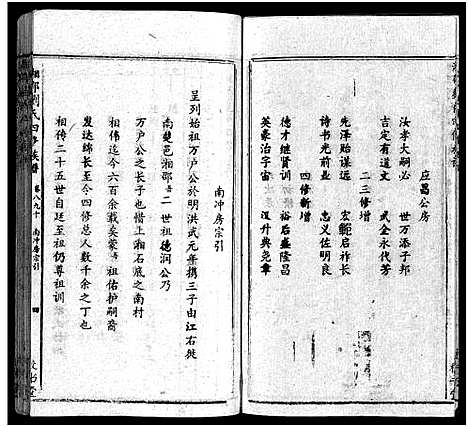 应昌公房
汝孝大嗣必 世万添子邦
吉定有道文 武全永代芳
二三修增
先泽贻谋远 宏启祚长
诗书光前业 忠义佐明良
四修新增
德才继贤训 裕后盛隆昌
英豪治宇宙 汉升典尧章
南冲房宗引
呈列始祖万户公於明洪武元年携三子由江右徙
南楚邑湘邵 二世祖德润公乃
万户公之长子也惜上湘石底之南村
相伟迄今六百余载矣蒙 祖佑护嗣裔
发达绵长至今四修总人数千余之丁也
相传二十五世自廷至祖仍尊祖训
湘邵刘氏四修族谱 卷八九十 南冲房宗引 四